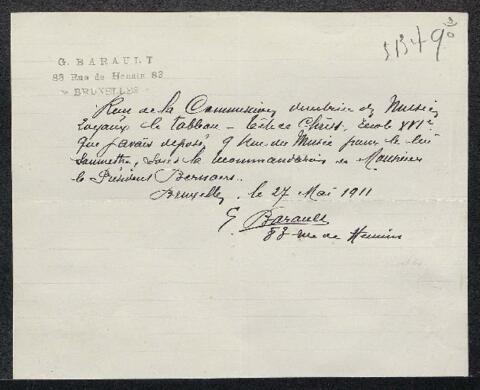 5349
G. BARAULT
83 Rue de Hennin 83
BRUXELLES
Reçu de la Commission directrice des Musées
royaux le tableau – tête de Christ. École XVIe
que j'avais déposé, 9 rue du Musée pour le lui
soumettre, sous la recommandation de Monsieur
le Président Bernaers.
Bruxelles, le 27 Mai 1911
G. Barault
83 rue de Hennin